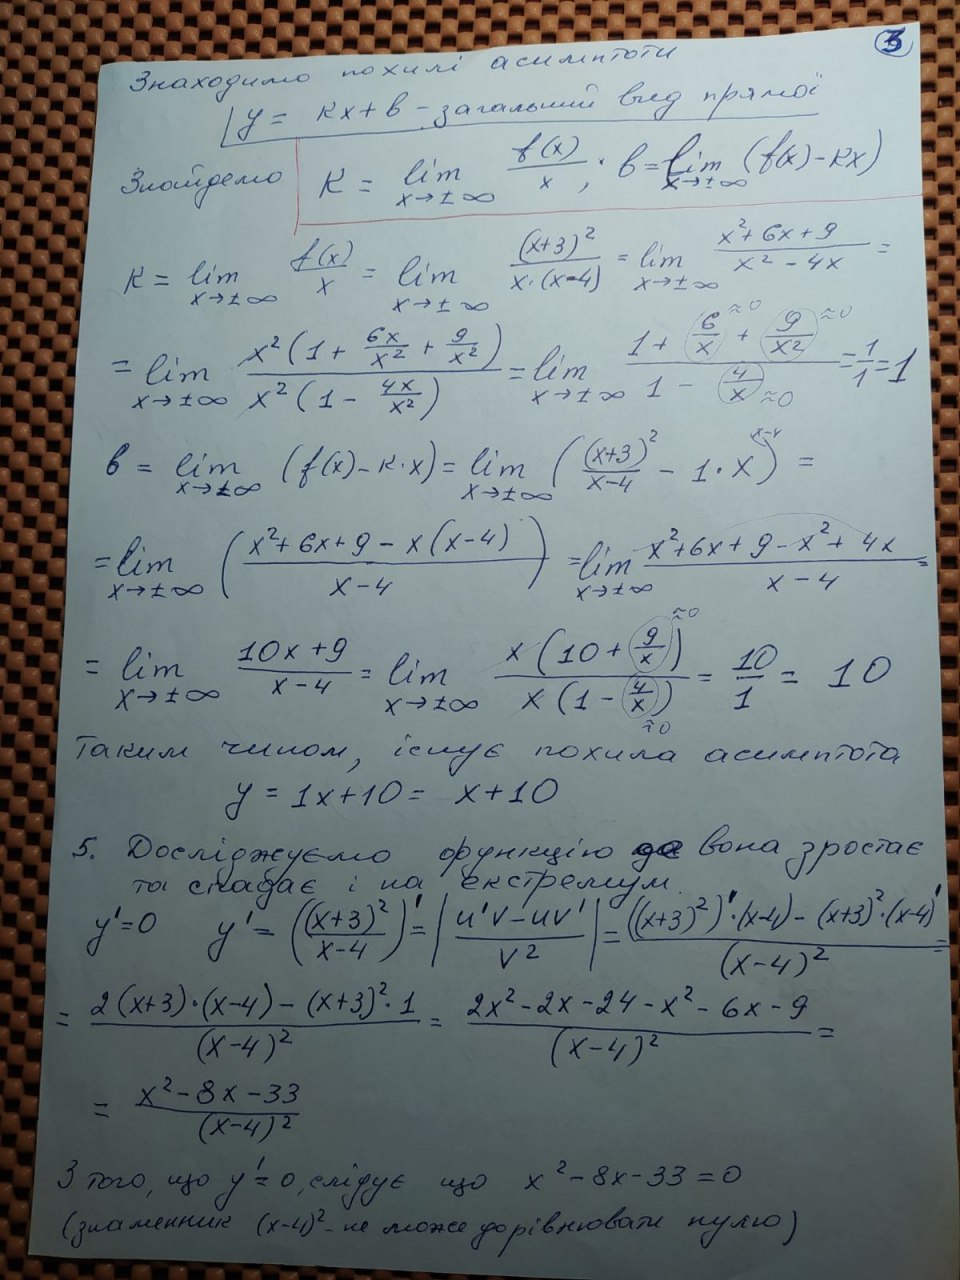 3
Знаходимо похилі асимптоти
y = kx + b - загальний вид прямої
Знайдемо K = lim x→±∞ f(x)/x ; b = lim x→±∞ (f(x) - kx)
K = lim x→±∞ f(x)/x = lim x→±∞ (x+3)²/(x·(x-4)) = lim x→±∞ (x²+6x+9)/(x²-4x) =
= lim x→±∞ x²(1 + 6x/x² + 9/x²)/x²(1 - 4x/x²) = lim x→±∞ (1 + 6/x ≈0 + 9/x² ≈0)/(1 - 4/x ≈0) = 1/1 = 1
b = lim x→±∞ (f(x) - k·x) = lim x→±∞ ((x+3)²/(x-4) - 1·x) x-4 =
= lim x→±∞ ((x²+6x+9 - x(x-4))/(x-4)) = lim x→±∞ (x²+6x+9-x²+4x)/(x-4) =
= lim x→±∞ (10x+9)/(x-4) = lim x→±∞ x(10 + 9/x ≈0)/x(1 - 4/x ≈0) = 10/1 = 10
Таким чином, існує похила асимптота
y = 1x+10 = x+10
5. Досліджуємо функцію де вона зростає
та спадає і на екстремум.
y'=0 y' = ((x+3)²/(x-4))' = |(u'v-uv')/v²| = (((x+3)²)'·(x-4) - (x+3)²·(x-4)')/(x-4)² =
= (2(x+3)·(x-4) - (x+3)²·1)/(x-4)² = (2x²-2x-24-x²-6x-9)/(x-4)² =
= (x²-8x-33)/(x-4)²
З того, що y'=0, слідує що x²-8x-33=0
(знаменник (x-4)² - не може дорівнювати нулю)